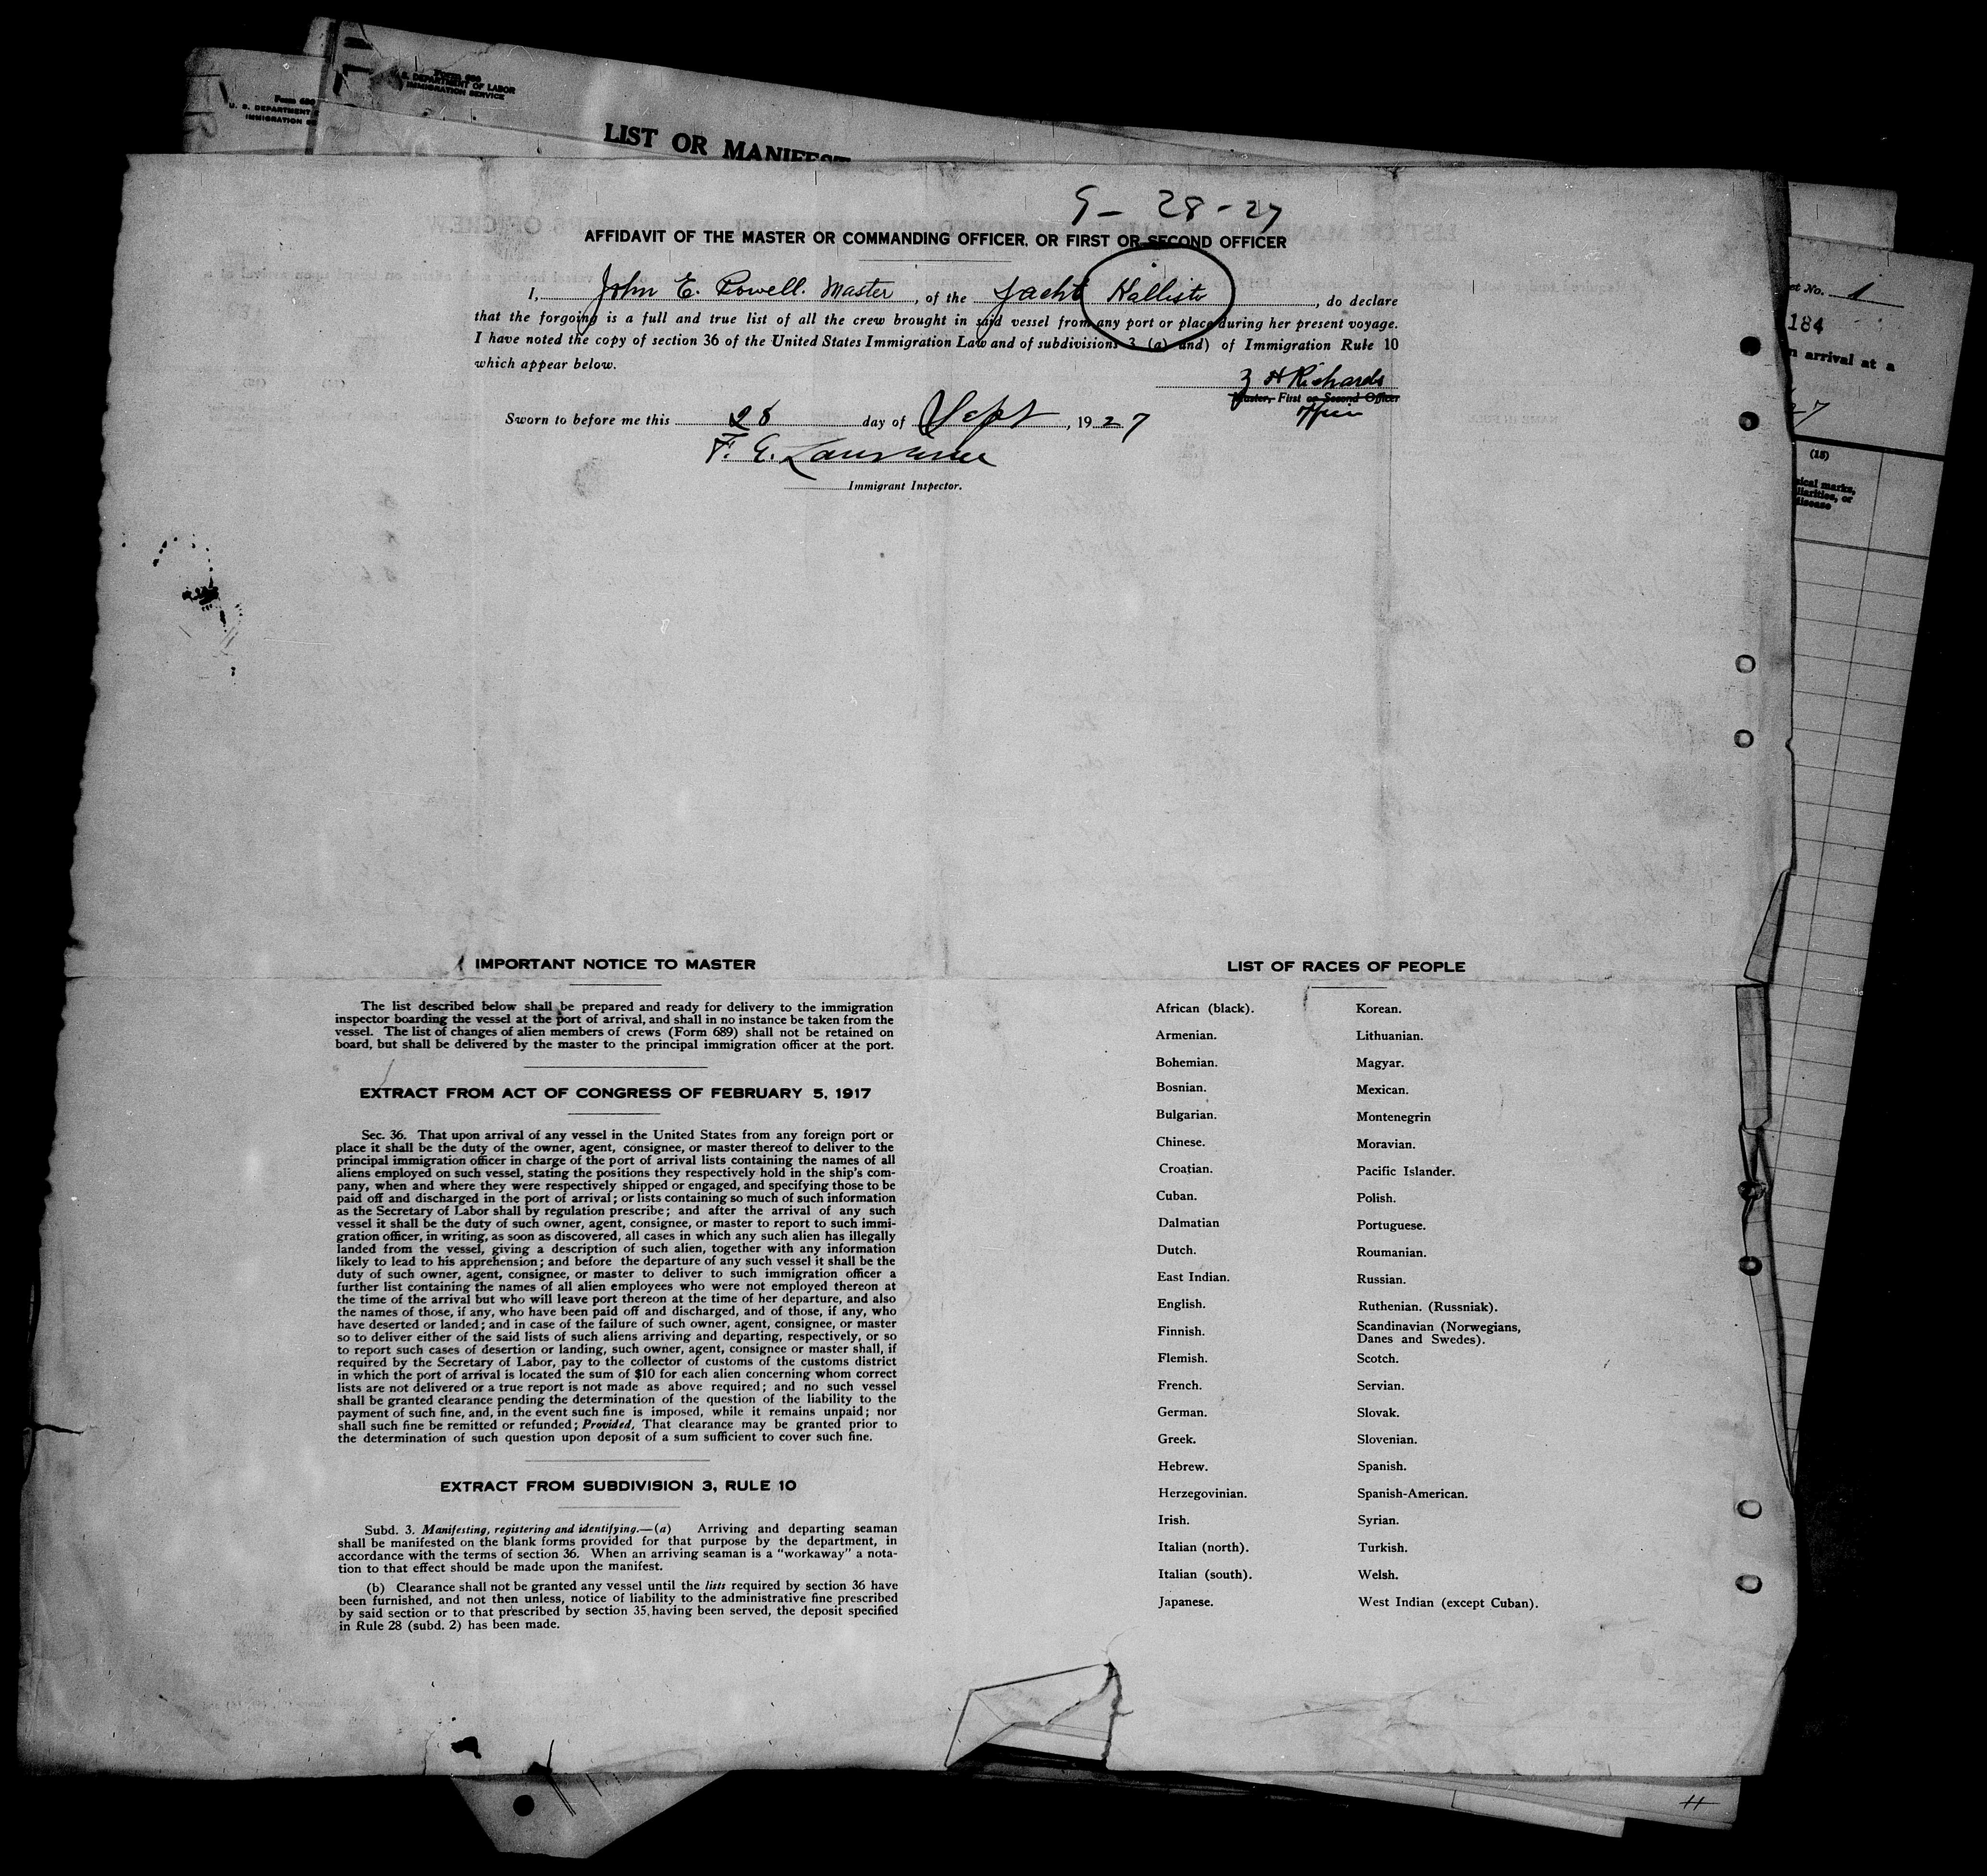 Form 689
U. S. DEPARTMENT OF LABOR
IMMIGRATION SERVICE
U. S. DEPARTMENT
IMMIGRATION
LIST OR MANIFEST
9 - 28 - 27
AFFIDAVIT OF THE MASTER OR COMMANDING OFFICER, OR FIRST OR SECOND OFFICER
I, John E. Powell. Master, of the Yacht Kallisto, do declare
that the forgoing is a full and true list of all the crew brought in said vessel from any port or place during her present voyage.
I have noted the copy of section 36 of the United States Immigration Law and of subdivisions 3 (a) and) of Immigration Rule 10
which appear below.
H Richards
Master, First or Second Officer
officer
Sworn to before me this 28 day of Sept, 1927
F. E. Lawrence
Immigrant Inspector.
et No. 1
184
n arrival at a
27
(15)
sical marks,
liarities, or
disease
IMPORTANT NOTICE TO MASTER
The list described below shall be prepared and ready for delivery to the immigration
inspector boarding the vessel at the port of arrival, and shall in no instance be taken from the
vessel. The list of changes of alien members of crews (Form 689) shall not be retained on
board, but shall be delivered by the master to the principal immigration officer at the port.
EXTRACT FROM ACT OF CONGRESS OF FEBRUARY 5, 1917
Sec. 36. That upon arrival of any vessel in the United States from any foreign port or
place it shall be the duty of the owner, agent, consignee, or master thereof to deliver to the
principal immigration officer in charge of the port of arrival lists containing the names of all
aliens employed on such vessel, stating the positions they respectively hold in the ship's com-
pany, when and where they were respectively shipped or engaged, and specifying those to be
paid off and discharged in the port of arrival; or lists containing so much of such information
as the Secretary of Labor shall by regulation prescribe; and after the arrival of any such
vessel it shall be the duty of such owner, agent, consignee, or master to report to such immi-
gration officer, in writing, as soon as discovered, all cases in which any such alien has illegally
landed from the vessel, giving a description of such alien, together with any information
likely to lead to his apprehension; and before the departure of any such vessel it shall be the
duty of such owner, agent, consignee, or master to deliver to such immigration officer a
further list containing the names of all alien employees who were not employed thereon at
the time of the arrival but who will leave port thereon at the time of her departure, and also
the names of those, if any, who have been paid off and discharged, and of those, if any, who
have deserted or landed; and in case of the failure of such owner, agent, consignee, or master
so to deliver either of the said lists of such aliens arriving and departing, respectively, or so
to report such cases of desertion or landing, such owner, agent, consignee or master shall, if
required by the Secretary of Labor, pay to the collector of customs of the customs district
in which the port of arrival is located the sum of $10 for each alien concerning whom correct
lists are not delivered or a true report is not made as above required; and no such vessel
shall be granted clearance pending the determination of the question of the liability to the
payment of such fine, and, in the event such fine is imposed, while it remains unpaid; nor
shall such fine be remitted or refunded; Provided, That clearance may be granted prior to
the determination of such question upon deposit of a sum sufficient to cover such fine.
EXTRACT FROM SUBDIVISION 3, RULE 10
Subd. 3. Manifesting, registering and identifying.—(a) Arriving and departing seaman
shall be manifested on the blank forms provided for that purpose by the department, in
accordance with the terms of section 36. When an arriving seaman is a "workaway" a nota-
tion to that effect should be made upon the manifest.
(b) Clearance shall not be granted any vessel until the lists required by section 36 have
been furnished, and not then unless, notice of liability to the administrative fine prescribed
by said section or to that prescribed by section 35, having been served, the deposit specified
in Rule 28 (subd. 2) has been made.
LIST OF RACES OF PEOPLE
African (black).
Armenian.
Bohemian.
Bosnian.
Bulgarian.
Chinese.
Croatian.
Cuban.
Dalmatian
Dutch.
East Indian.
English.
Finnish.
Flemish.
French.
German.
Greek.
Hebrew.
Herzegovinian.
Irish.
Italian (north).
Italian (south).
Japanese.
Korean.
Lithuanian.
Magyar.
Mexican.
Montenegrin
Moravian.
Pacific Islander.
Polish.
Portuguese.
Roumanian.
Russian.
Ruthenian. (Russniak).
Scandinavian (Norwegians,
Danes and Swedes).
Scotch.
Servian.
Slovak.
Slovenian.
Spanish.
Spanish-American.
Syrian.
Turkish.
Welsh.
West Indian (except Cuban).